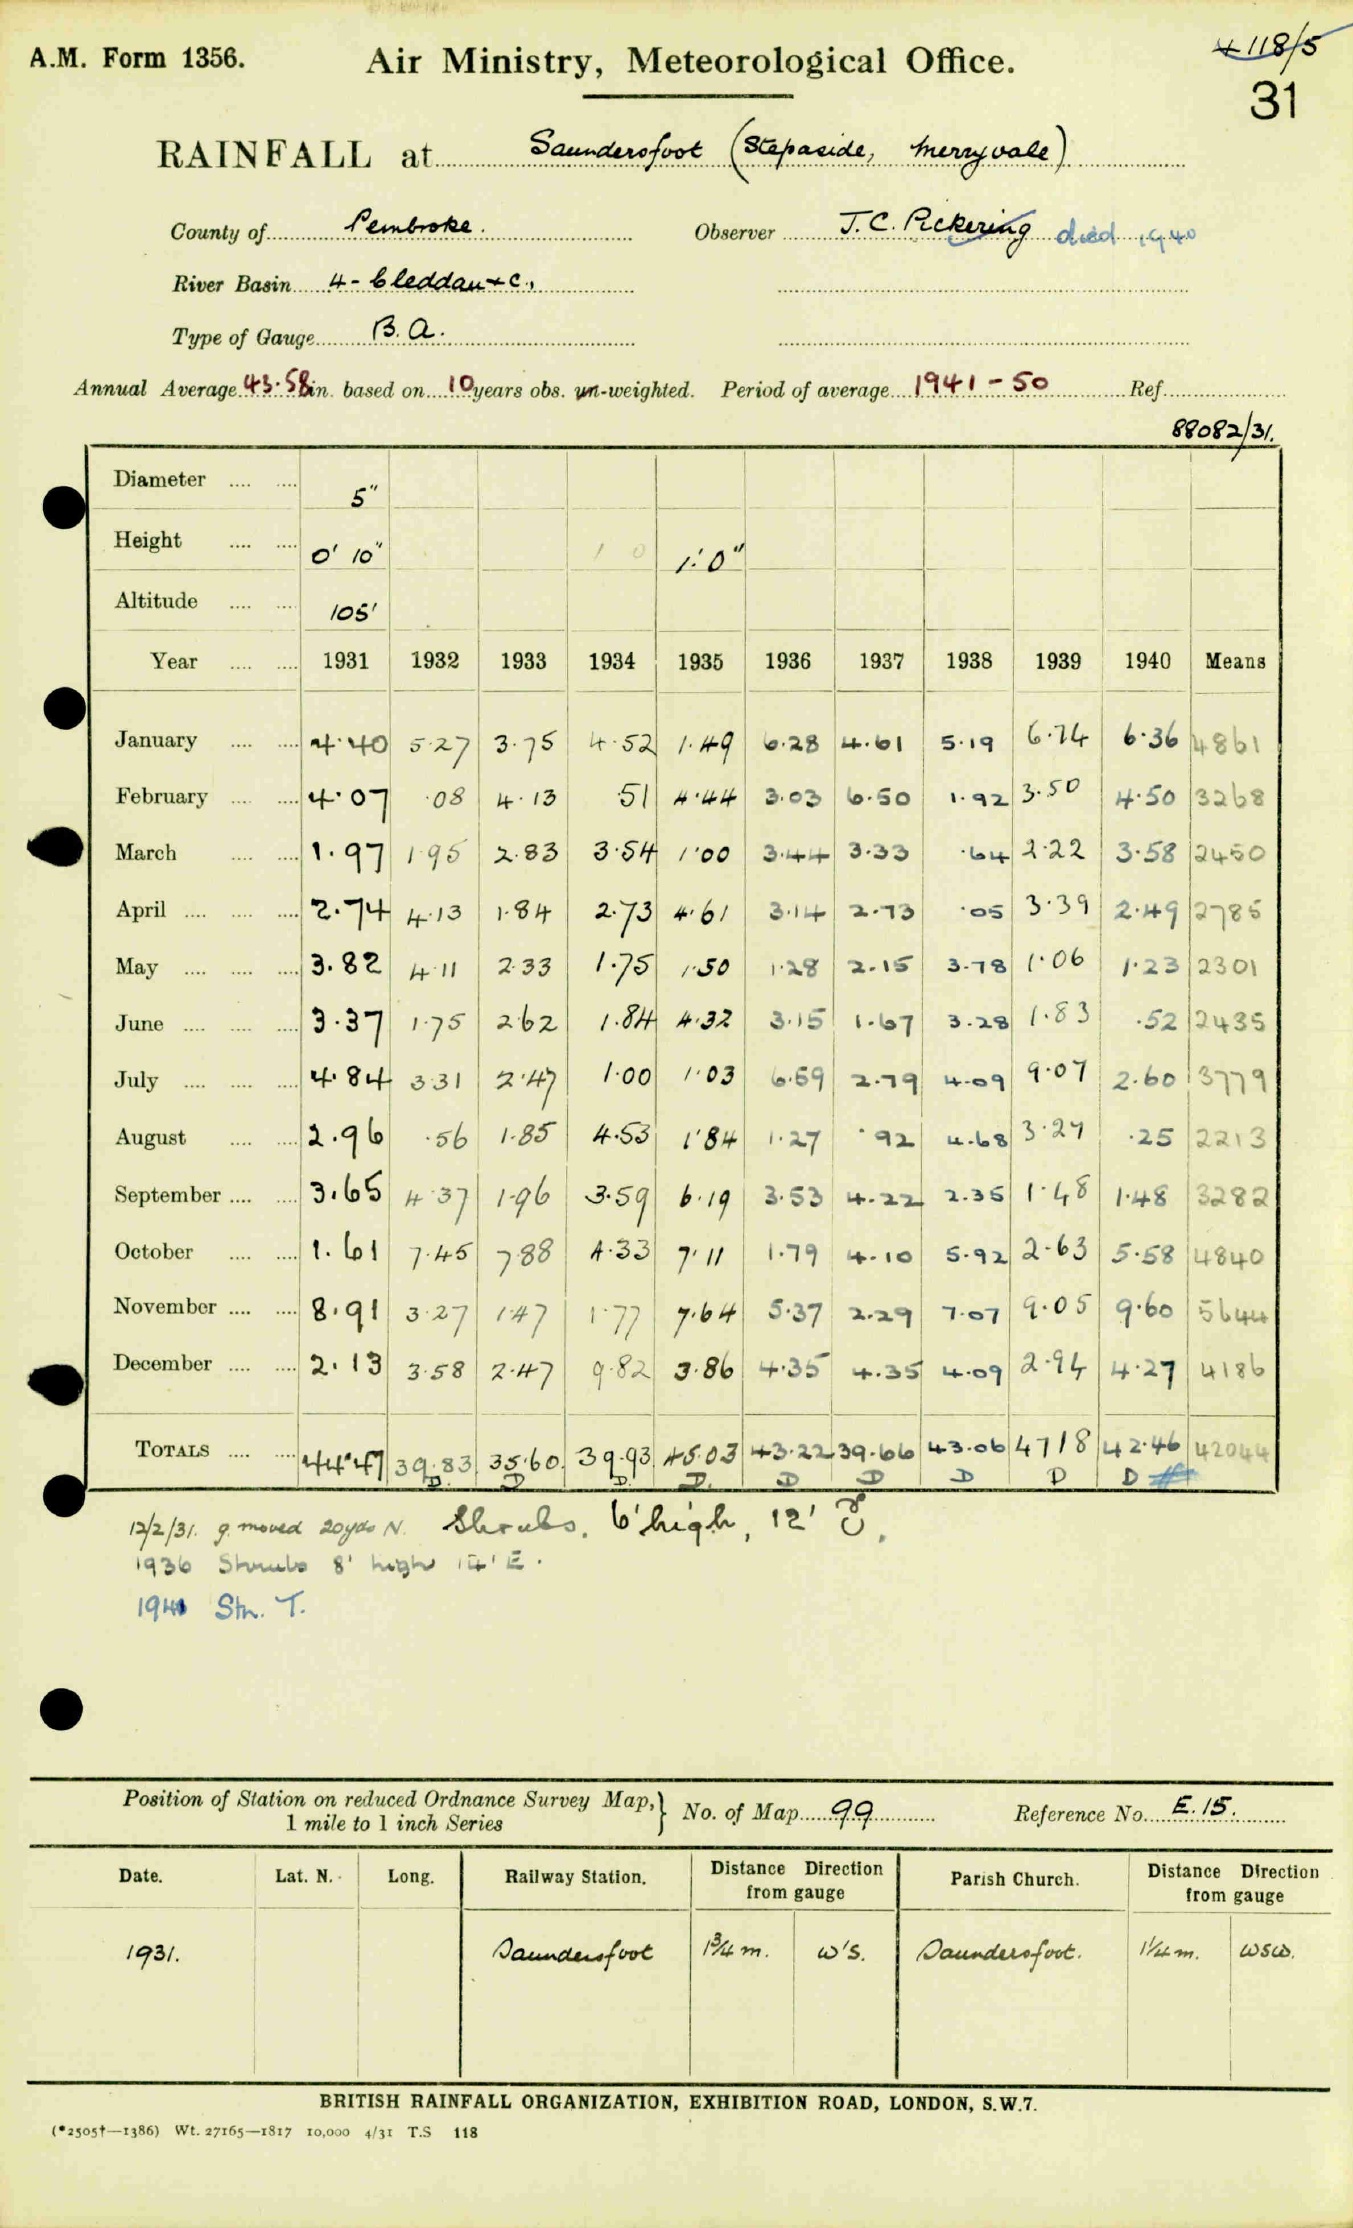 A.M. Form 1356.
Air Ministry, Meteorological Office.
4118/5
31
RAINFALL at Saundersfoot (Stepaside, Merryvale)
County of Pembroke. Observer J.C. Pickering died 1940
River Basin 4 - Cleddau &c.,
Type of Gauge B.A.
Annual Average 43.58 in. based on 10 years obs. un-weighted. Period of average 1941-50 Ref.
88082/31.
Diameter .... .... 5"
Height .... .... 0' 10" 1 0 1' 0"
Altitude .... .... 105'
Year .... .... 1931 1932 1933 1934 1935 1936 1937 1938 1939 1940 Means
January .... .... 4.40 5.27 3.75 4.52 1.49 6.28 4.61 5.19 6.74 6.36 4861
February .... .... 4.07 .08 4.13 .51 4.44 3.03 6.50 1.92 3.50 4.50 3268
March .... .... 1.97 1.95 2.83 3.54 1.00 3.44 3.33 .64 2.22 3.58 2450
April .... .... .... 2.74 4.13 1.84 2.73 4.61 3.14 2.73 .05 3.39 2.49 2785
May .... .... .... 3.82 4.11 2.33 1.75 1.50 1.28 2.15 3.78 1.06 1.23 2301
June .... .... .... 3.37 1.75 2.62 1.84 4.32 3.15 1.67 3.28 1.83 .52 2435
July .... .... .... 4.84 3.31 2.47 1.00 1.03 6.59 2.79 4.09 9.07 2.60 3779
August .... .... 2.96 .56 1.85 4.53 1.84 1.27 .92 4.68 3.27 .25 2213
September .... .... 3.65 4.37 1.96 3.59 6.19 3.53 4.22 2.35 1.48 1.48 3282
October .... .... 1.61 7.45 7.88 4.33 7.11 1.79 4.10 5.92 2.63 5.58 4840
November .... .... 8.91 3.27 1.47 1.77 7.64 5.37 2.29 7.07 9.05 9.60 5644
December .... .... 2.13 3.58 2.47 9.82 3.86 4.35 4.35 4.09 2.94 4.27 4186
TOTALS .... .... 44.47 39.83 35.60 39.93 45.03 43.22 39.66 43.06 47.18 42.46 42044
D. D D. D. D D D D D
12/2/31. g. moved 20yds N. Shrubs, 6' high, 12'
1936 Shrubs 8' high 14' E.
1941 Stn. T.
Position of Station on reduced Ordnance Survey Map,
1 mile to 1 inch Series
No. of Map 99 Reference No. E.15.
Date. Lat. N. Long. Railway Station. Distance Direction from gauge Parish Church. Distance Direction from gauge
1931. Saundersfoot 1¾ m. W'S. Saundersfoot. 1¼ m. WSW.
BRITISH RAINFALL ORGANIZATION, EXHIBITION ROAD, LONDON, S.W.7.
(*2505†—1386) Wt. 27165—1817 10,000 4/31 T.S 118